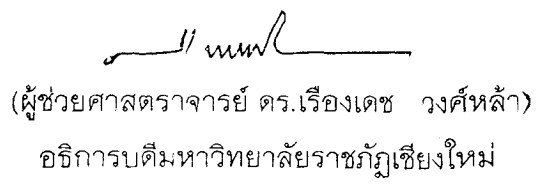 (ผู้ช่วยศาสตราจารย์ ดร.เรืองเดช วงศ์หล้า)
อธิการบดีมหาวิทยาลัยราชภัฏเชียงใหม่